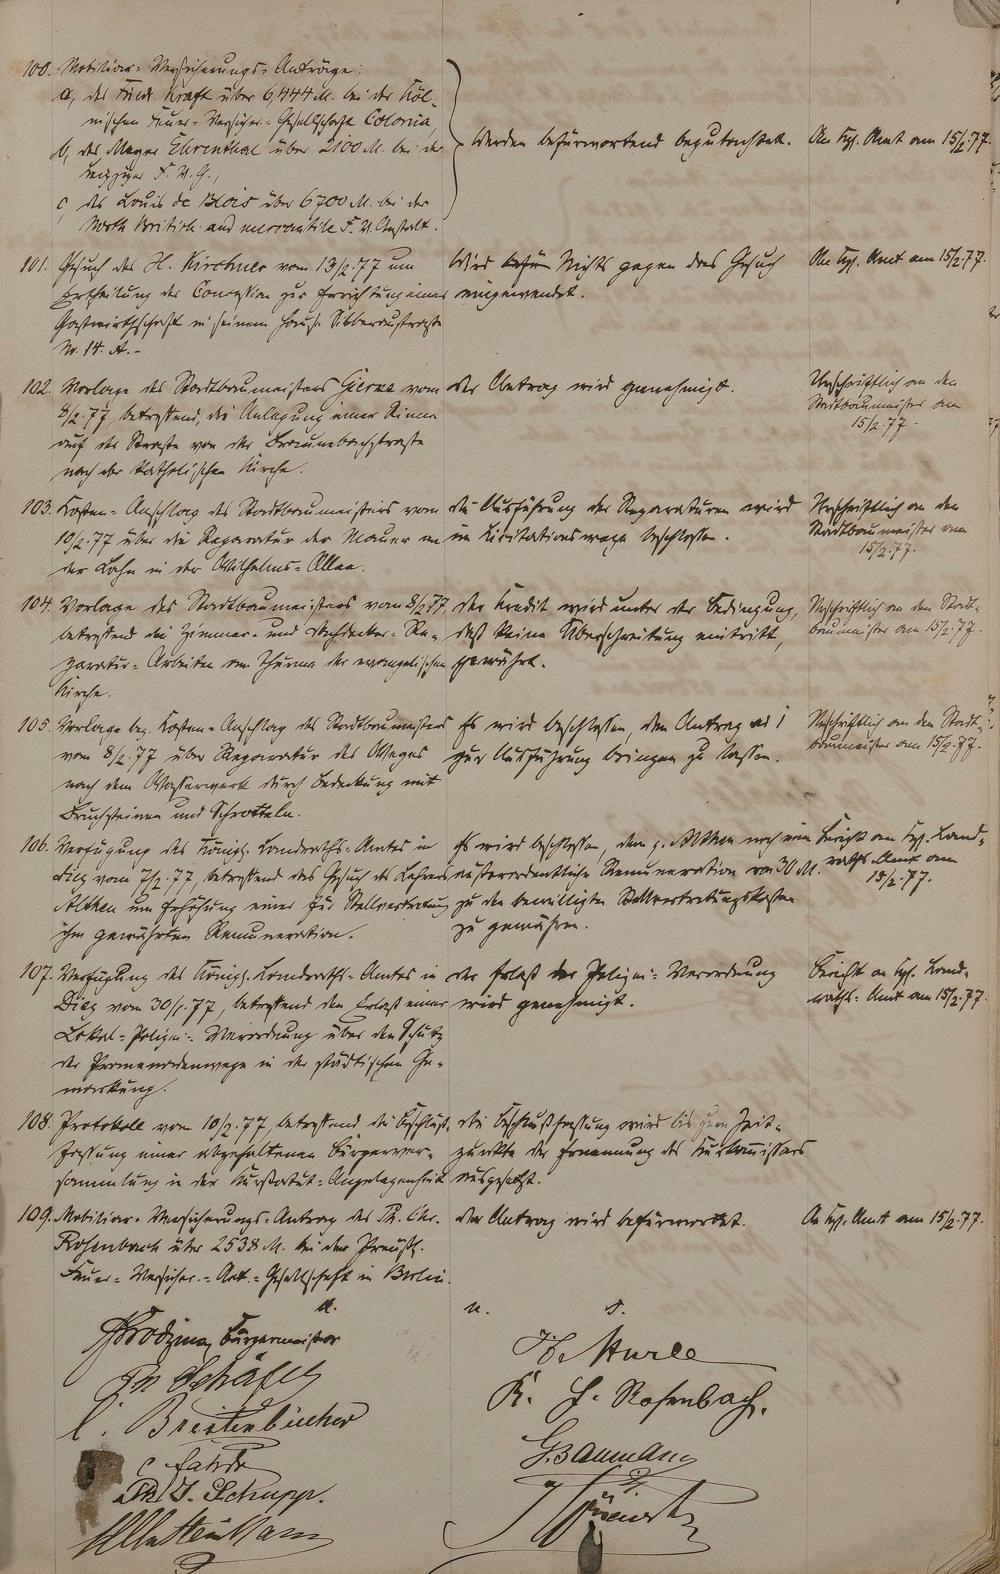 100. Mobiliar-Versicherungs-Anträge:
a, des Friedr. Kraft über 6,444 M. bei der Köl-
nischen Feuer-Versicher-Gesellschaft Colonia,
b, des Mayer Ehrenthal über 2100 M. bei der
Leipziger F. V. G.,
c, des Louis de Blois über 6700 M. bei der
North British and mercantile F. V. Anstalt.
Werden befürwortend begutachtet.
An Kgl. Amt am 15/2.77.
101. Gesuch des H. Kirchner vom 13/2.77 um
Ertheilung der Concession zur Errichtung einer
Gastwirthschaft in seinem Hause
No. 14. A.-
Wird befür Nichts gegen das Gesuch
eingewendet.
An Kgl. Amt am 15/2.77.
102. Vorlage des Stadtbaumeisters vom
8/2.77, betreffend, die Anlegung einer Rinne
auf der Straße von der
nach der katholischen Kirche.
Der Antrag wird genehmigt.
Urschriftlich an den
Stadtbaumeister am
15/2.77.
103. Kosten-Anschlag des Stadtbaumeisters vom
10/2.77 über die Reparatur der Mauer an
der Lahn in der Wilhelms-Allee.
Die Ausführung der Reparaturen wird
im Licitationswege beschlossen.
Urschriftlich an den
Stadtbaumeister am
15/2.77.
104. Vorlage des Stadtbaumeisters vom 8/2.77
betreffend die Zimmer- und Dachdecker-Re-
paratur-Arbeiten am Thurme der evangelischen
Kirche.
Der Kredit wird unter der Bedingung,
daß keine Überschreitung eintritt,
gewährt.
Urschriftlich an den Stadt-
baumeister am 15/2.77.
105. Vorlage bez. Kosten-Anschlag des Stadtbaumeisters
vom 8/2.77 über Reparatur des Weges
nach dem Wasserwerk durch Bedeckung mit
Bruchsteinen und Schrotteln.
Es wird beschlossen, den Antrag ad 1
zur Ausführung bringen zu lassen.
Urschriftlich an den Stadt-
baumeister am 15/2.77.
106. Verfügung des Königl. Landraths-Amtes in
Diez vom 7/2.77, betreffend das Gesuch des Lehrers
um Erhöhung einer für Stellvertretung
ihm gewährten Remuneration.
Es wird beschlossen, dem noch eine
außerordentliche Remuneration von 30 M.
zu den bewilligten Stellvertretungskosten
zu gewähren.
Bericht an Kgl. Land-
raths-Amt am
15/2.77.
107. Verfügung des Königl. Landraths-Amtes in
Diez vom 30/1.77, betreffend den Erlaß einer
Lokal-Polizei-Verordnung über den Schutz
der Promenadenwege in der städtischen Ge-
markung.
Der Erlaß der Polizei-Verordnung
wird genehmigt.
Bericht an Kgl. Land-
raths-Amt am 15/2.77.
108. Protokoll vom 10/2.77, betreffend die Beschluß-
fassung einer abgehaltenen Bürgerver-
sammlung in der Kurstatut-Angelegenheit
Die Beschlußfassung wird bis zum Zeit-
punkte der Ernennung des Kurkommissars
ausgesetzt.
109. Mobiliar-Versicherungs-Antrag des Ph. Chr.
Rosenbach über 2538 M. bei der Preuß.
Feuer-Versicher.-Akt.-Gesellschaft in Berlin.
Der Antrag wird befürwortet.
An Kgl. Amt am 15/2.77.
u. s.
Bürgermeister
Schäfer
Breitenbücher
Ph. J. Schupp.
K. F. Rosenbach.
G. Baumann